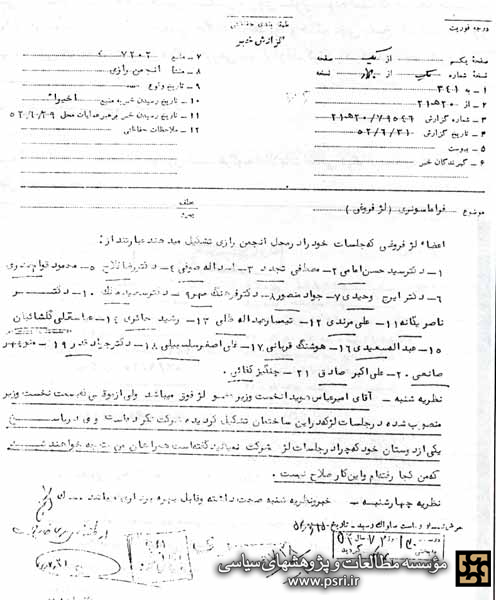 درجه فوریت
طبقه بندی حفاظتی
گزارش خبر
صفحه یکم از یک صفحه
نسخه شماره یک از چهار نسخه
۱ - به ۳۴۱
۲ - از ۲۰ه۲۱
۳ - شماره گزارش ۲۰ه۲۱/۷۹۵۴۶
۴ - تاریخ گزارش ۵۲/۶/۳۱
۵ - پیوست
۶ - گیرندگان خبر
۷ - منبع ۷۲۰۲
۸ - منشأ انجمن رازی
۹ - تاریخ وقوع
۱۰ - تاریخ رسیدن خبر به منبع اخیراً
۱۱ - تاریخ رسیدن خبر به رهبر عملیات محل ۵۲/۶/۲۹
۱۲ - ملاحظات حفاظتی
موضوع فراماسونری (لژ فروغی)
اعضاء لژ فروغی که جلسات خود را در محل انجمن رازی تشکیل میدهند عبارتند از:
۱- دکتر سید حسن امامی ۲- مصطفی تجدد ۳- اسداله صوفی ۴- دکتر رضا فلاح ۵- محمود قوام صدری
۶- دکتر ایرج وحیدی ۷- جواد منصور ۸- دکتر فرهنگ مهر ۹- دکتر سعید مالک ۱۰- دکتر
ناصر یگانه ۱۱- علی مرندی ۱۲- تیمسار عبداله ظلی ۱۳- رشید حائری ۱۴- عباسقلی گلشائیان
۱۵- عبدالله سعیدی ۱۶- هوشنگ قربانی ۱۷- علی اصغر سلسبیلی ۱۸- دکتر جواد صدر ۱۹- منوچهر
صانعی ۲۰- علی اکبر صادق ۲۱- چنگیز کفائی
نظریه شنبه - آقای امیرعباس هویدا نخست وزیر عضو لژ فوق میباشد ولی از موقعی که بسمت نخست وزیر
منصوب شده در جلسات لژ که در این ساختمان تشکیل گردیده شرکت نکرده است و وی در پاسخ
یکی از دوستان خود که چرا در جلسات لژ شرکت نمیکنید گفته است همراهان من متوجه خواهند شد
که من کجا رفته‌ام و این کار صلاح نیست.
نظریه چهارشنبه - خبر و نظریه شنبه صحت داشته و قابل بهره برداری میباشد
مؤسسه مطالعات و پژوهشهای سیاسی
www.psri.ir